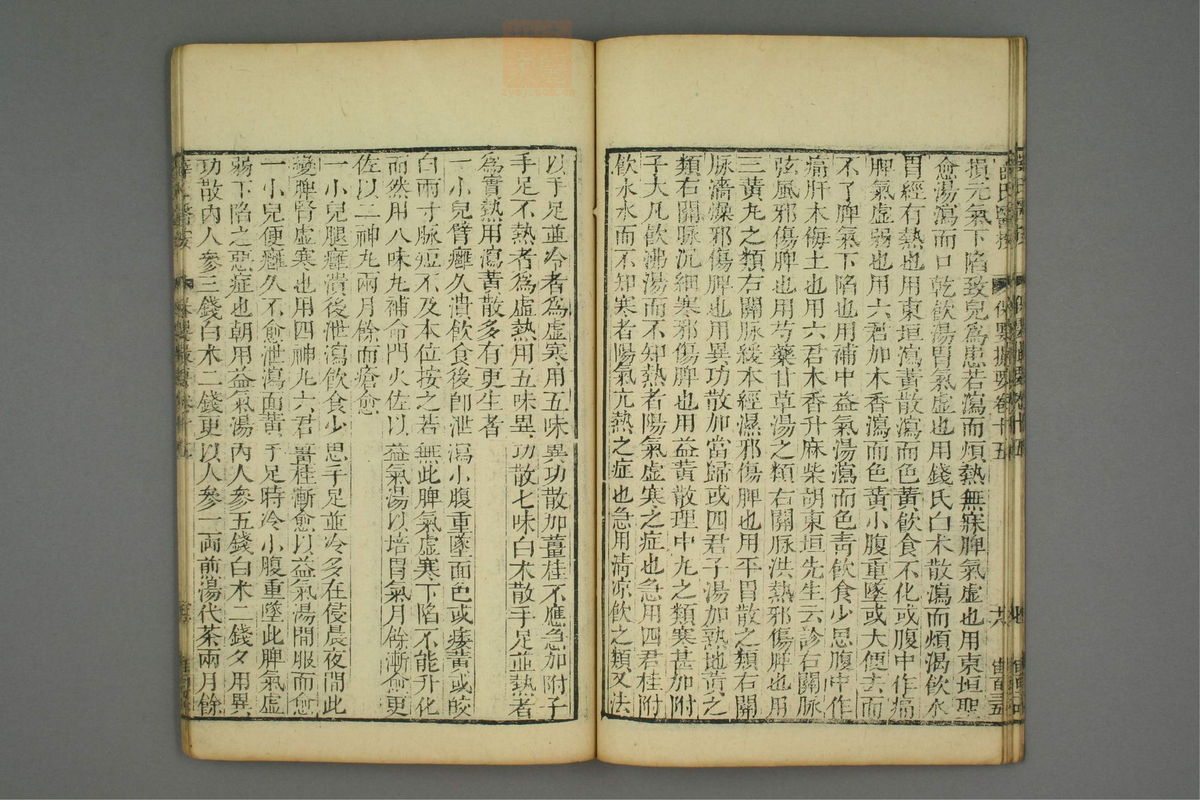 薛氏醫按 保嬰撮要卷十五 十六
損元氣下陷致兒為患若瀉而煩熱無寐脾氣虛也用東垣聖
愈湯瀉而口乾飲湯胃氣虛也用錢氏白术散瀉而煩渴飲水
胃經有熱也用東垣瀉黃散瀉而色黃飲食不化或腹中作痛
脾氣虛弱也用六君加木香瀉而色黃小腹重墜或大便去而
不了脾氣下陷也用補中益氣湯瀉而色青飲食少思腹中作
痛肝木侮土也用六君木香升麻柴胡東垣先生云診右關脉
弦風邪傷脾也用芍藥甘草湯之類右關脉洪熱邪傷脾也用
三黃丸之類右關脉緩本經濕邪傷脾也用平胃散之類右關
脉濇燥邪傷脾也用異功散加當歸或四君子湯加熟地黃之
類右關脉沉細寒邪傷脾也用益黃散理中丸之類寒甚加附
子大凡飲沸湯而不知熱者陽氣虛寒之症也急用四君桂附
飲氷水而不知寒者陽氣亢熱之症也急用清凉飲之類又法
以手足並冷者為虛寒用五味異功散加薑桂不應急加附子
手足不熱者為虛熱用五味異功散七味白术散手足並熱者
為實熱用瀉黃散多有更生者
一小兒臂癰久潰飲食後卽泄瀉小腹重墜面色或痿黃或皎
白兩寸脉短不及本位按之若無此脾氣虛寒下陷不能升化
而然用八味丸補命門火佐以益氣湯以培胃氣月餘漸愈更
佐以二神丸兩月餘而瘡愈
一小兒腿癰潰後泄瀉飲食少思手足並冷多在侵晨夜間此
變脾腎虛寒也用四神丸六君薑桂漸愈以益氣湯間服而愈
一小兒便癰久不愈泄瀉面黃手足時冷小腹重墜此脾氣虛
弱下陷之惡症也朝用益氣湯內人參五錢白术二錢夕用異
功散內人參三錢白术二錢更以人參一兩煎湯代茶兩月餘